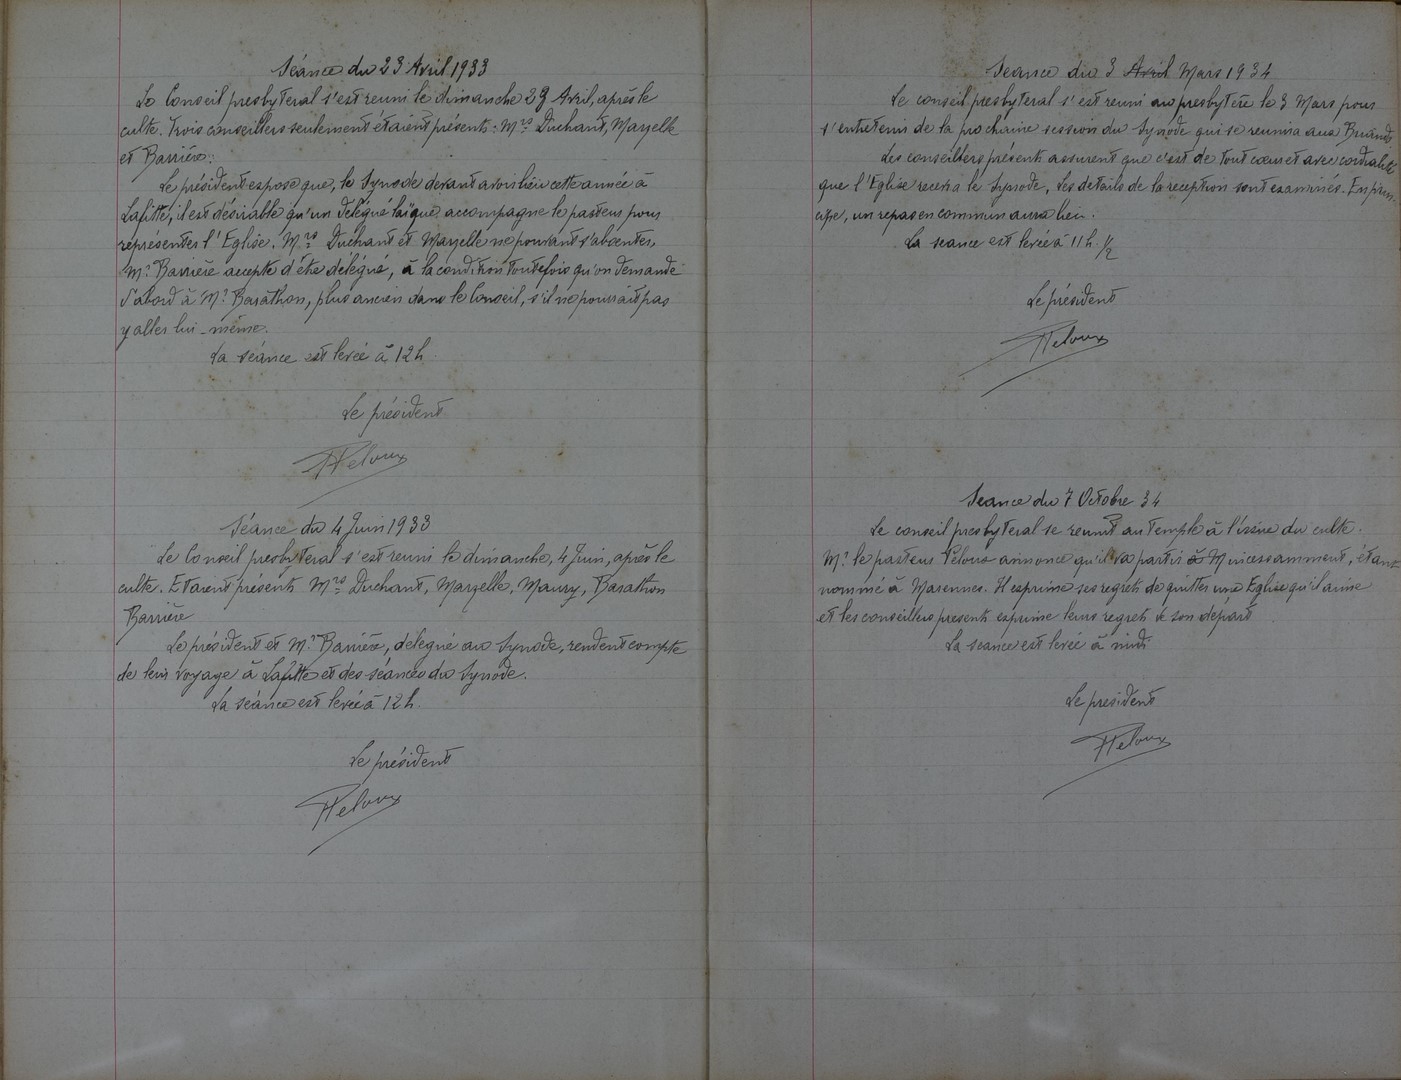 Séance du 23 Avril 1933
Le Conseil presbyteral s'est reuni le dimanche 23 Avril, après le
culte. Trois conseillers seulement étaient présents : Mrs Duchant, Mazelle
et Barrière.
Le président expose que, le Synode devant avoir lieu cette année à
Lafitte, il est désirable qu'un délégué laïque accompagne le pasteur pour
représenter l'Eglise. Mrs Duchant et Mazelle ne pouvant s'absenter,
Mr Barrière accepte d'être délégué, à la condition toutefois qu'on demande
d'abord à Mr Barathon, plus ancien dans le Conseil, s'il ne pourrait pas
y aller lui-même.
La séance est levée à 12h.
Le président
Peloux
Séance du 4 Juin 1933
Le Conseil presbyteral s'est reuni le dimanche, 4 Juin, après le
culte. Etaient présents Mrs Duchant, Mazelle, Maury, Barathon
Barrière
Le président et Mr Barrière, délégué au Synode, rendent compte
de leur voyage à Lafitte et des séances du Synode.
La séance est levée à 12h.
Le président
Peloux
Seance du 3 Avril Mars 1934
Le conseil presbyteral s'est reuni au presbytère le 3 Mars pour
s'entretenir de la prochaine session du Synode qui se reunira aux
Les conseillers présents assurent que c'est de tout cœur et avec cordialité
que l'Eglise recevra le Synode. Les details de la reception sont examinés. En prin-
cipe, un repas en commun aura lieu.
La seance est levée à 11h. 1/2
Le président
Peloux
Seance du 7 Octobre 34
Le conseil presbyteral se reunit au Temple à l'issue du culte.
Mr le pasteur Peloux annonce qu'il va partir incessamment, étant
nommé à Il exprime ses regrets de quitter une Eglise qu'il aime
et les conseillers presents exprime leurs regrets de son départ
La seance est levée à midi
Le president
Peloux